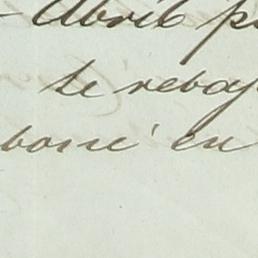 Abril p
te rebaj
bone en